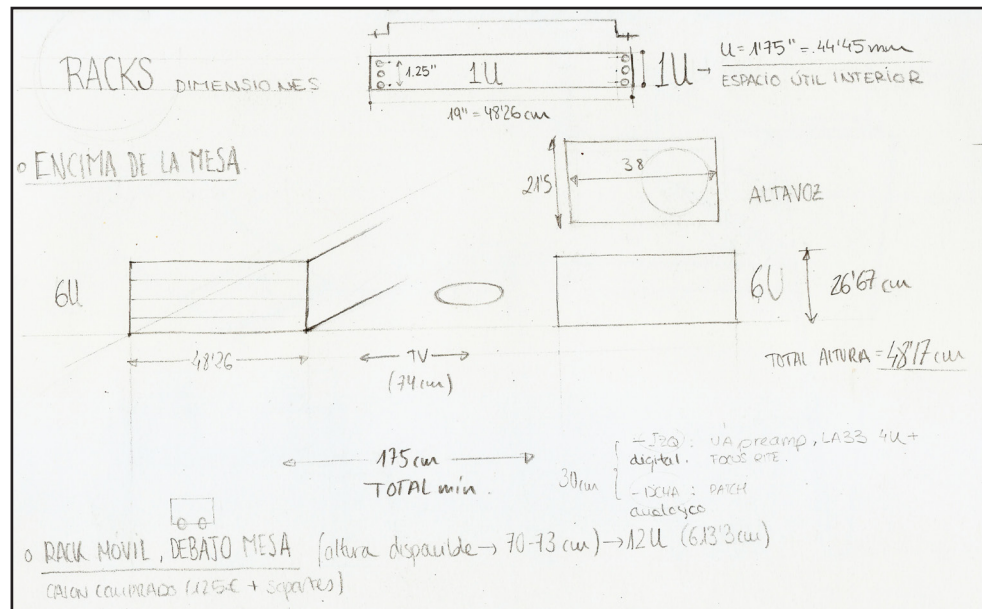 RACKS DIMENSIONES
1.25"
1U
1U → U = 1'75" = 44'45 mm
ESPACIO ÚTIL INTERIOR
19" = 48'26 cm
ENCIMA DE LA MESA
21'5
38
ALTAVOZ
6U
6U
26'67 cm
48'26
TV
(74 cm)
TOTAL ALTURA = 48'17 cm
175 cm
TOTAL min.
30cm
- IZQ : UA preamp, LA33 4U +
digital.
- DCHA : PATCH
analogico
RACK MÓVIL, DEBAJO MESA (altura disponible → 70-73 cm) → 12U (613'3 cm)
CAJON COMPRADO (125€ + soportes)